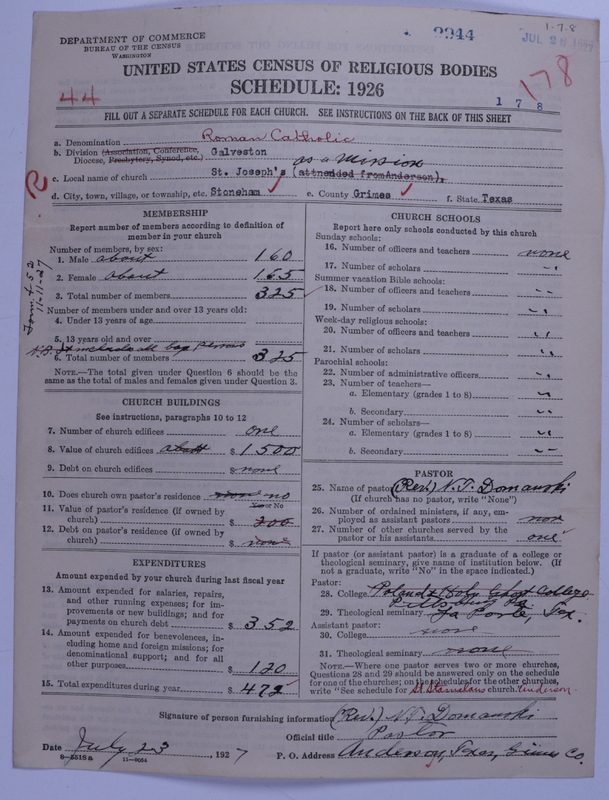 1-7-8
DEPARTMENT OF COMMERCE
BUREAU OF THE CENSUS
WASHINGTON
2944
JUL 28 1927
UNITED STATES CENSUS OF RELIGIOUS BODIES
SCHEDULE: 1926
44
178
1 7 8
FILL OUT A SEPARATE SCHEDULE FOR EACH CHURCH. SEE INSTRUCTIONS ON THE BACK OF THIS SHEET
a. Denomination Roman Catholic
b. Division (Association, Conference, Diocese, Presbytery, Synod, etc.) Galveston
as a mission
c. Local name of church St. Joseph's (attnended fromAnderson).
R
d. City, town, village, or township, etc. Stoneham e. County Grimes f. State Texas
MEMBERSHIP
Report number of members according to definition of member in your church
Number of members, by sex:
1. Male about 160
2. Female about 165
3. Total number of members 325
Number of members under and over 13 years old:
4. Under 13 years of age
5. 13 years old and over
6. Total number of members 325
NOTE.—The total given under Question 6 should be the same as the total of males and females given under Question 3.
Form 452
11-11-27
CHURCH BUILDINGS
See instructions, paragraphs 10 to 12
7. Number of church edifices one
8. Value of church edifices about $ 1500
9. Debt on church edifices $ none
10. Does church own pastor's residence no
Yes or No
11. Value of pastor's residence (if owned by church) $ 200
12. Debt on pastor's residence (if owned by church) $ none
EXPENDITURES
Amount expended by your church during last fiscal year
13. Amount expended for salaries, repairs, and other running expenses; for improvements or new buildings; and for payments on church debt $ 352
14. Amount expended for benevolences, including home and foreign missions; for denominational support; and for all other purposes $ 120
15. Total expenditures during year $ 472
CHURCH SCHOOLS
Report here only schools conducted by this church
Sunday schools:
16. Number of officers and teachers none
17. Number of scholars "
Summer vacation Bible schools:
18. Number of officers and teachers "
19. Number of scholars "
Week-day religious schools:
20. Number of officers and teachers "
21. Number of scholars "
Parochial schools:
22. Number of administrative officers "
23. Number of teachers—
a. Elementary (grades 1 to 8) "
b. Secondary "
24. Number of scholars—
a. Elementary (grades 1 to 8) "
b. Secondary "
PASTOR
25. Name of pastor (Rev.) N.T. Domanski
(If church has no pastor, write "None")
26. Number of ordained ministers, if any, employed as assistant pastors none
27. Number of other churches served by the pastor or his assistants one
If pastor (or assistant pastor) is a graduate of a college or theological seminary, give name of institution below. (If not a graduate, write "No" in the space indicated.)
Pastor:
28. College Poland & Holy Ghost College
Pittsburg Pa.
29. Theological seminary La Porte, Tex.
Assistant pastor:
30. College none
31. Theological seminary none
NOTE.—Where one pastor serves two or more churches, Questions 28 and 29 should be answered only on the schedule for one of the churches; on the schedules for the other churches, write "See schedule for St Stanislaus church. Anderson
Signature of person furnishing information (Rev.) N.T. Domanski
Official title Pastor
Date July 23 1927 P. O. Address Anderson, Texas, Grimes Co.
8-5516a 11-9054